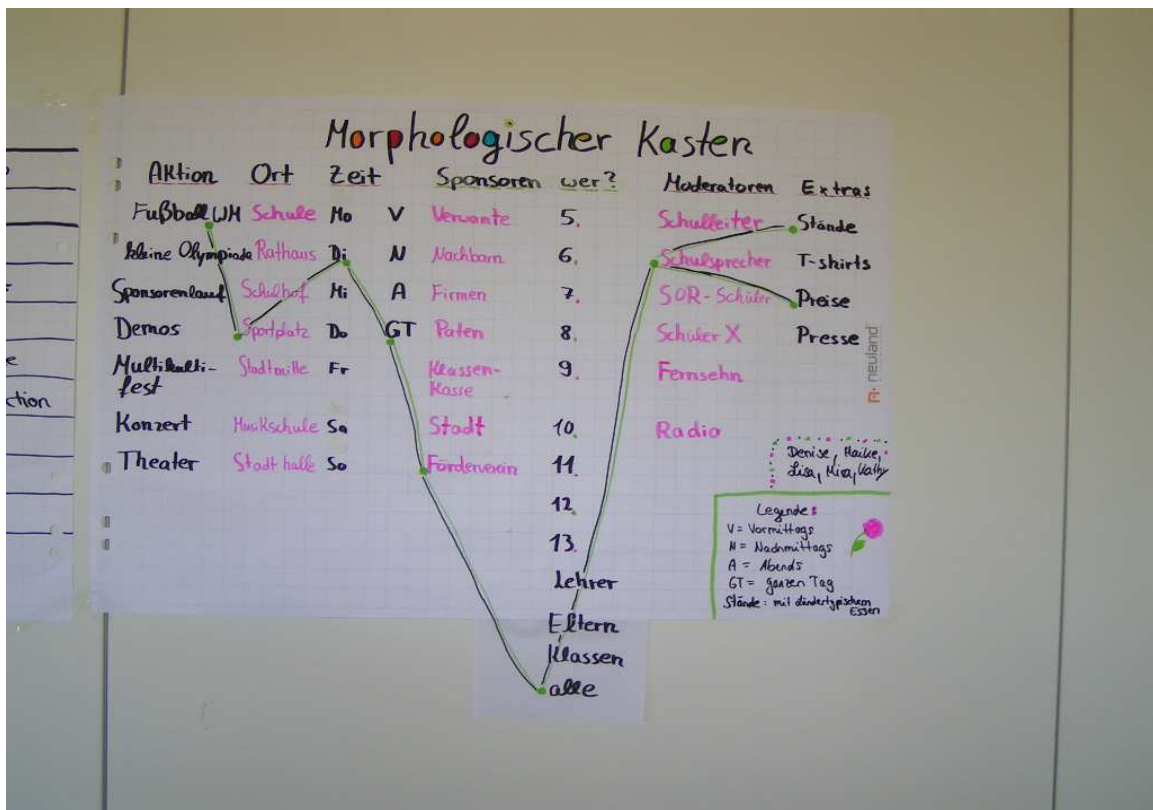 Morphologischer Kasten
Aktion Ort Zeit Sponsoren wer? Moderatoren Extras
Fußball WM Schule Mo V Verwante 5. Schulleiter Stände
kleine Olympiade Rathaus Di N Nachbarn 6. Schulsprecher T-shirts
Sponsorenlauf Schulhof Mi A Firmen 7. SOR-Schüler Preise
Demos Sportplatz Do GT Paten 8. Schüler X Presse
Multikulti- Stadtmitte Fr Klassen- 9. Fernsehn
fest Kasse
Konzert Musikschule Sa Stadt 10. Radio
Theater Stadthalle So Förderverein 11.
12.
13.
Lehrer
Eltern
Klassen
alle
neuland
Denise, Maike,
Lisa, Mira, Kathy
Legende:
V = Vormittags
N = Nachmittags
A = Abends
GT = ganzen Tag
Stände: mit ländertypischem
Essen
ction